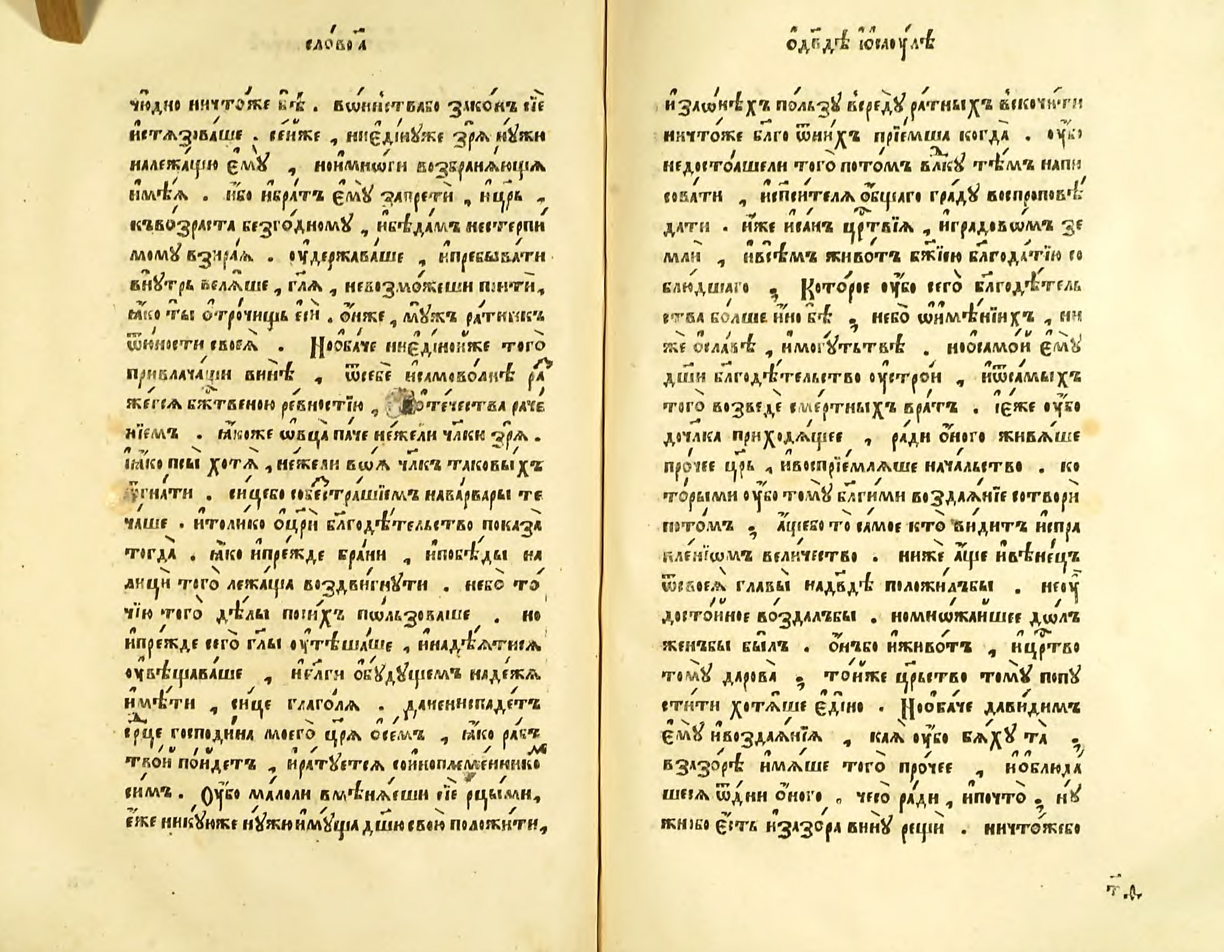 сло́во а҃
чю́дно ничто́же бѣ̀ . вѡ́инстваꙋбо зако́нъ сїе
и҆стѧзова́ше . се́йже , ниеди́нꙋже зрѧ̀ нꙋ́жи
належа́щꙋю є҆мꙋ̀ , ноимнѡ́ги возбранѧ́ющїѧ
и҆мѣ́ѧ . и҆́бо и҆бра́тъ є҆мꙋ̀ запретѝ , и҆цр҃ь ,
къвозраста безго́дномꙋ , и҆бѣда́мъ нестерпи
момꙋ взира́ѧ . ᲂу҆держава́ше , и҆пребыва́ти
внꙋ́трь велѧ́ше , гл҃ѧ , невозмо́жеши поитѝ ,
ꙗ҆́ко ты̀ о҆́трочищь є҆сѝ . ѻ҆́нже , мꙋ́жъ ра́тникъ
ѿю́ности своеѧ̀ . Нооба́че ниеди́нойже того̀
привлача́щи винѣ̀ , ѿсебѐ и҆самово́лнѣ ра
жегсѧ бж҃твеною ре́вностїю , о҆те́чества раче
нїемъ . ꙗ҆́коже ѡ҆вца̀ па́че не́жели чл҃ки зрѧ̀ .
ꙗ҆́ко псы̀ хотѧ̀ , не́жели воѧ̀ чл҃къ таковы́хъ
ᲂу҆гна́ти . си́цебо собестра́шїемъ нава́рвары те
ча́ше . и҆толи́ко о҆цр҃и бл҃годѣ́тельство показа̀
тогда̀ . ꙗ҆́ко и҆пре́жде бра́ни , и҆побѣ́ды на
лицы̀ того̀ лежа́ща воздви́гнꙋти . не́бо то́
чїю того̀ дѣ́лы по́нихъ по́льзоваше . но
и҆пре́жде сего̀ гл҃ы ᲂу҆тѣша́ше , и҆надѣ́ѧтисѧ
ᲂу҆вѣщава́ше , и҆бл҃ги о҆бꙋ́дꙋщемъ наде́жѧ
и҆мѣ́ти , си́це глаго́лѧ . даневнспаде́тъ
ср҃це господи́на моегѡ̀ цр҃ѧ о҆се́мъ , ꙗ҆́ко ра́бъ
тво́й по́йдетъ , и҆ра́тꙋетсѧ соиноплеме́нникомъ
симъ . Оу҆́бо ма́лоли вмѣнѧ́еши сїѐ рцы́ми ,
є҆́же никꙋ́юже нꙋ́жю и҆мꙋ́ща дш҃ю свою̀ положи́ти ,
ѻ҆дв҃дѣ и҆ѡ҆саꙋ́лѣ
и҆заѡ҆нѣ́хъ по́льзꙋ всредꙋ̀ ра́тныхъ вскочи́ти
ничто́же бл҃го ѿни́хъ прїе́мша когда̀ . ᲂу҆́бо
недосто́ѧшели того̀ пото́мъ влⷣкꙋ тѣ́мъ напи
сова́ти , и҆спси́телѧ о҆́бщаго гра́дꙋ воспроповѣ́
дати . и҆́же и҆са́нъ црⷭ҇твїѧ , и҆градовѡ́мъ зе
млѝ , и҆всѣ́мъ живо́тъ бж҃їею благода́тїю со
блю́дшаго ; Кото́рое ᲂу҆́бо сего̀ бл҃годѣ́тель
ства бо́лше и҆́но бѣ̀ ; не́бо ѡ҆имѣ́нїихъ , ни
же о҆сла́вѣ , и҆могꙋ́тьтвѣ . ноосамо́й є҆мꙋ̀
дш҃и бл҃годѣ́тельство ᲂу҆стро́и , и҆ѿса́мыхъ
того̀ возведѐ сме́ртныхъ вра́тъ . і҆є́же ᲂу҆́бо
дочл҃ка приходѧ́щее , ра́ди о҆́ного живѧ́ше
про́чее цр҃ь , и҆воспрїе́млѧше нача́льство . ко
то́рыми ᲂу҆́бо томꙋ̀ бл҃ги́ми воздаѧ́нїе сотвори̂
пото́мъ ; а҆́щебо то̀ са́мое кто̀ ви́дитъ и҆спра
вле́нїѡмъ вели́чество . ниже а҆́ще и҆вѣне́цъ
ѿсвоеѧ̀ главы̀ надв҃дѣ положи́лъбы . неᲂу҆
досто́йное возда́лъбы . номно́жайшее до́лъ
женъбы бы́лъ . о҆́нъбо и҆живо́тъ , и҆црⷭ҇тво
томꙋ̀ дарова̀ ; то́йже цр҃ьство томꙋ̀ попꙋ
сти́ти хотѧ́ше є҆ди́но . Нооба́че дави́димъ
є҆мꙋ̀ и҆воздаѧ́нїѧ , ка́ѧ ᲂу҆́бо бѧ́хꙋ та̀ ;
взазо́рѣ и҆мѧ́ше того̀ про́чее , и҆о҆блюда́
шесѧ ѿдни о҆́ного , чесо̀ ра́ди , и҆почто̀ ; нꙋ́
жнобо є҆́сть и҆зазо́ра винꙋ̀ рещѝ . ничто́жебо
т҃ . ѳ